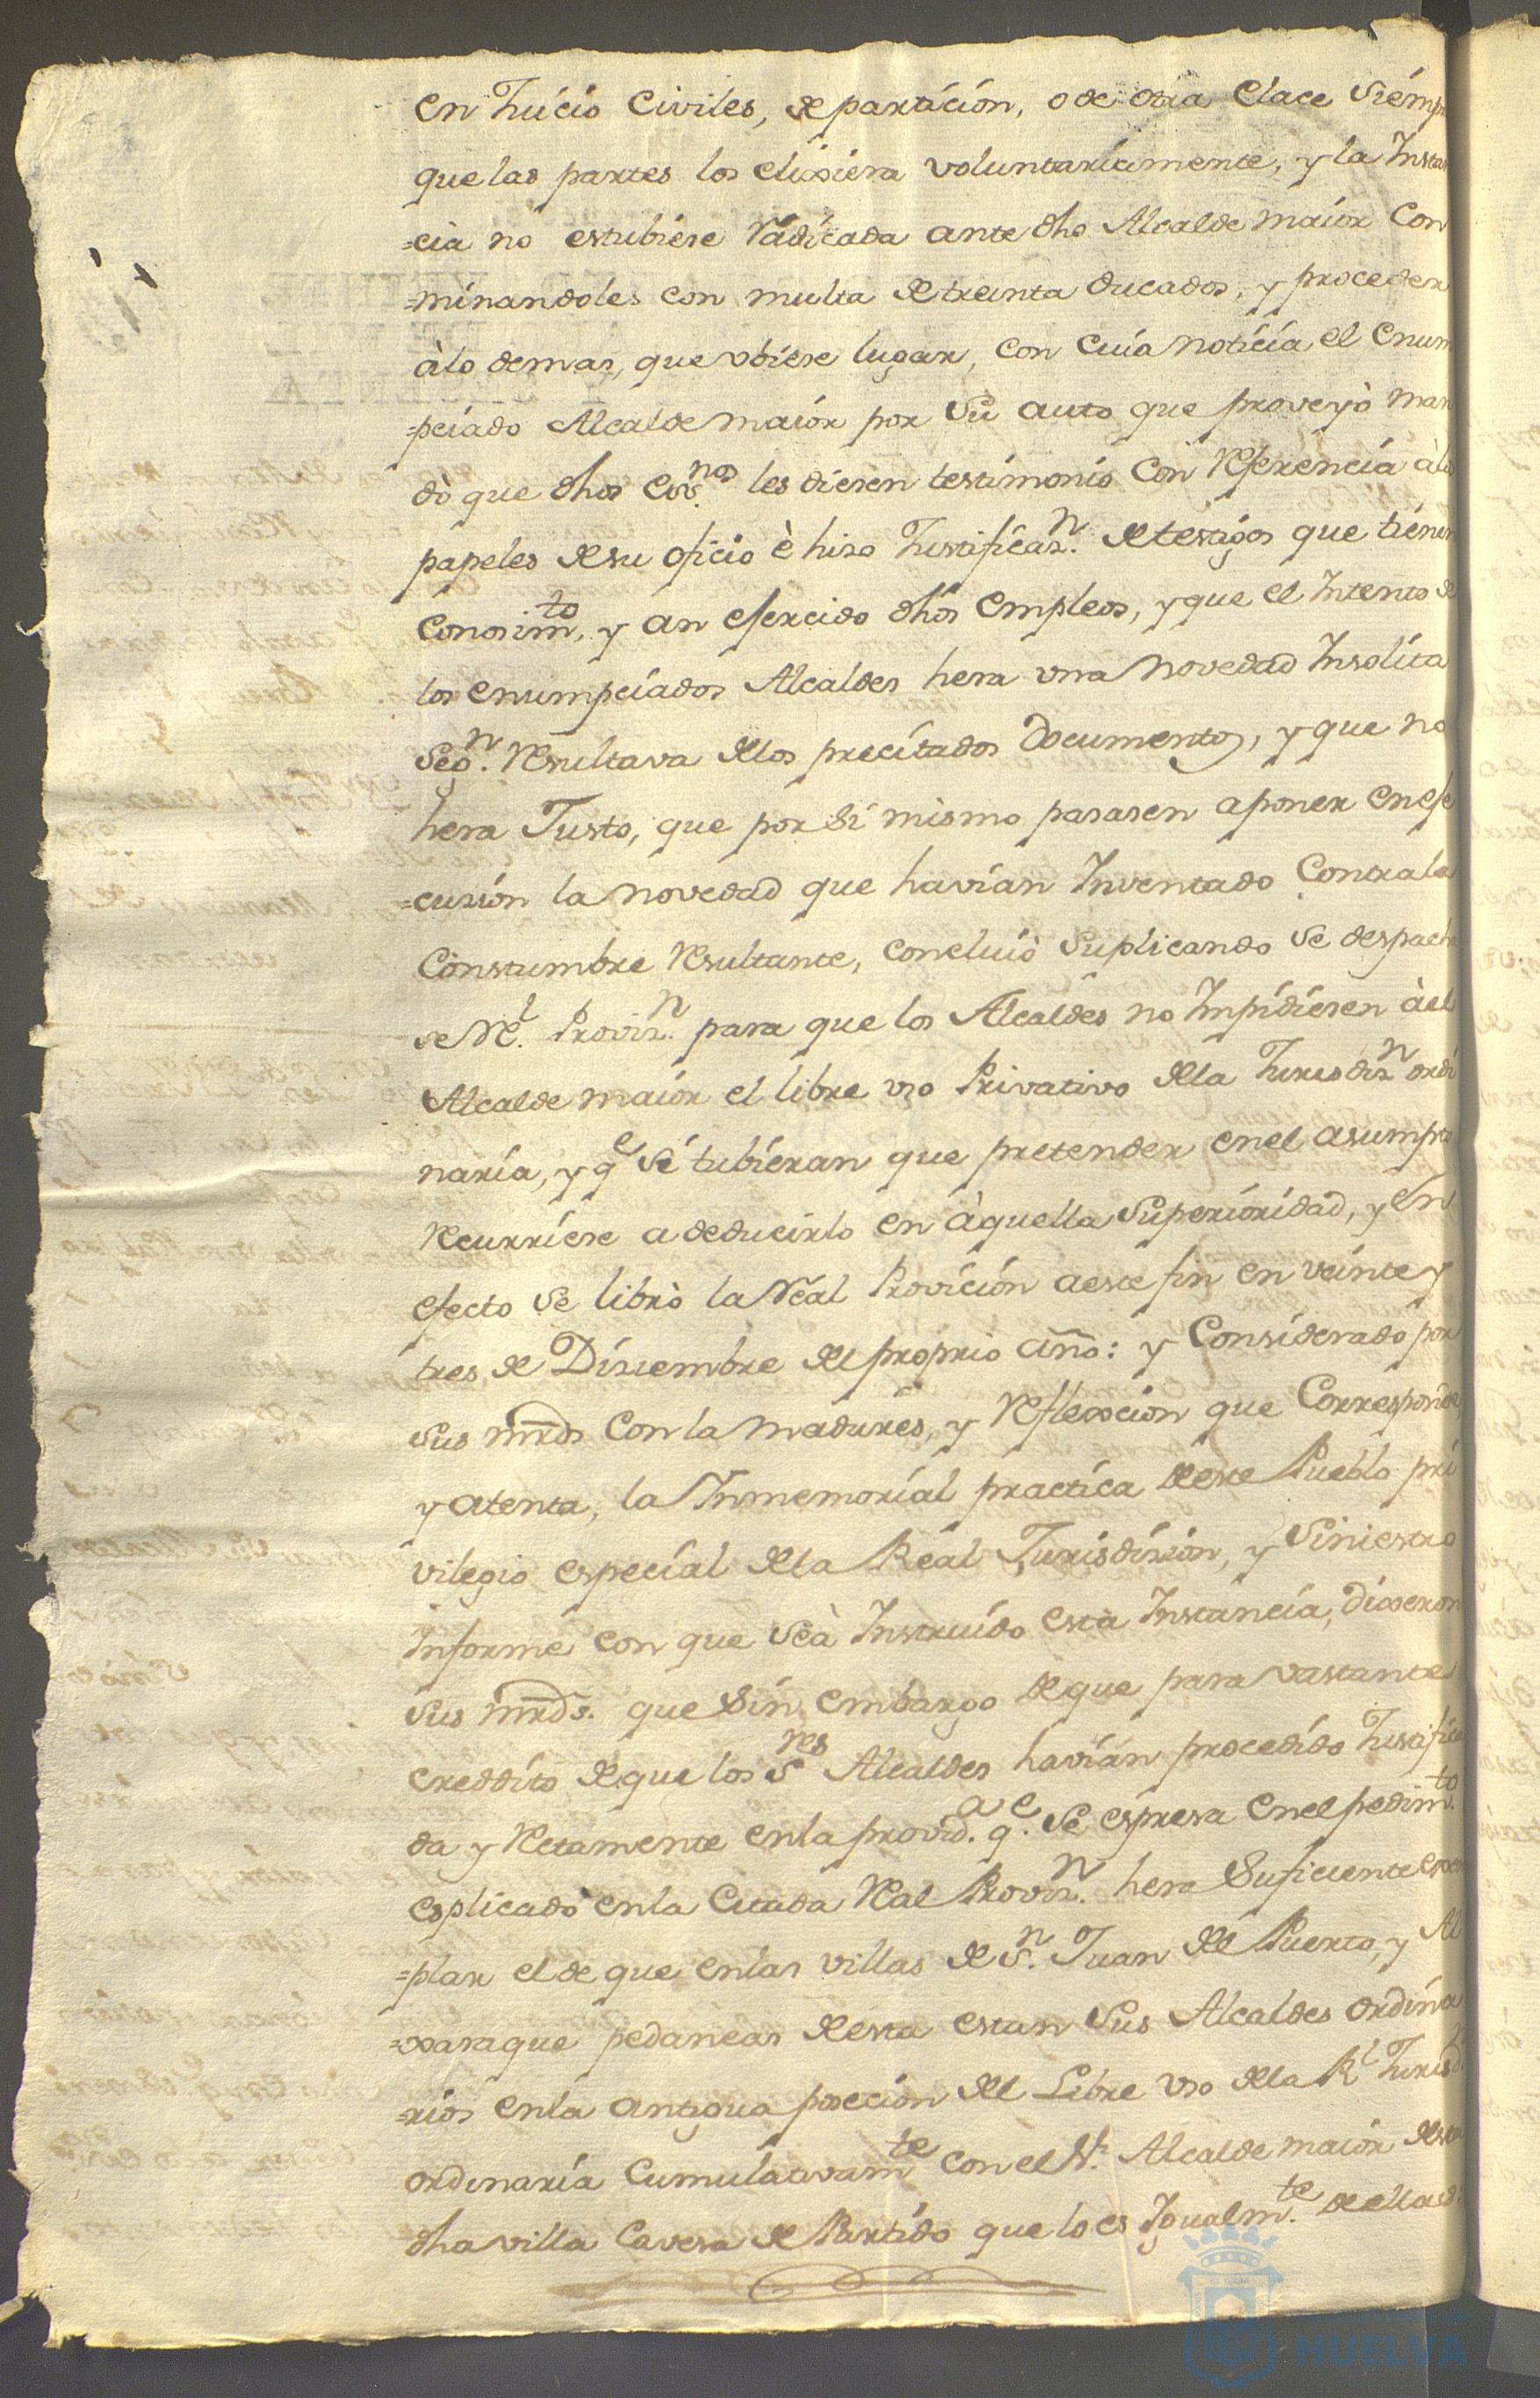 en Juicio Civiles, de particion, o de otra Clace Siempre
que las partes los elixiera voluntariamente, y la Instan
=cia no estubiese Radicada ante dho Alcalde maior Con
=minandoles con multa de treinta ducados, y proceder
àlo demas, que vbiese lugar, con cuia noticia el enum
=pciado Alcalde maior por Su auto que proveyò man
dò que dhos Essnos. les diesen testimonio con Referencia àlos
papeles de su oficio è hizo Justificazn. de testigos que tienen
Conosimto, y an esercido dhos empleos, y que el Intento de
los enumpciados Alcaldes hera vna novedad Insolita
Segn. Resultava de los precitados Documentos, y que no
hera Justo, que por Si mismo pasasen a poner en ese
=cusion la novedad que havian Inventado Contra la
Constumbre Resultante, concluiò Suplicando Se despacha
se Rl. Provizn. para que los Alcaldes no Impidiesen àel
Alcalde maior el libre vso Privativo de la Jurisdizn ordi
naria, y qe Si tubieran que pretender en el asumpto
Recurriese a deducirlo en àquella Superioridad, y en
efecto Se librò la Real Provicion a este fin en veinte y
tres de Disiembre del proprio año: y Considerado por
Sus mrds Con la madures, y Reflexcion que Corresponde
y atenta, la Inmemorial practica de este Pueblo pri
vilegio especial de la Real Jurisdision, y Siniestro
Informe con que Seà Instruido esta Instancia, dixeron
Sus mrds. que Sin embargo de que para vastante
creddito de que los Sres Alcaldes havian procedido Justifica
da y Retamente en la provida. qe. Se espresa en el pedimto.
esplicado en la Citada Real Provizn. hera Suficiente exem
=plar el de que en las villas de Sn. Juan del Puerto, y Al
=xaraque pedaneas de esta estan Sus Alcaldes ordina
=rios en la antigua poscion del Libre vso de la Rl Jurisdn
ordinaria Cumulativamte con el Sr. Alcalde maior de esta
dha villa Cavesa de Partido que lo es Igualmte. de ellas
HUELVA